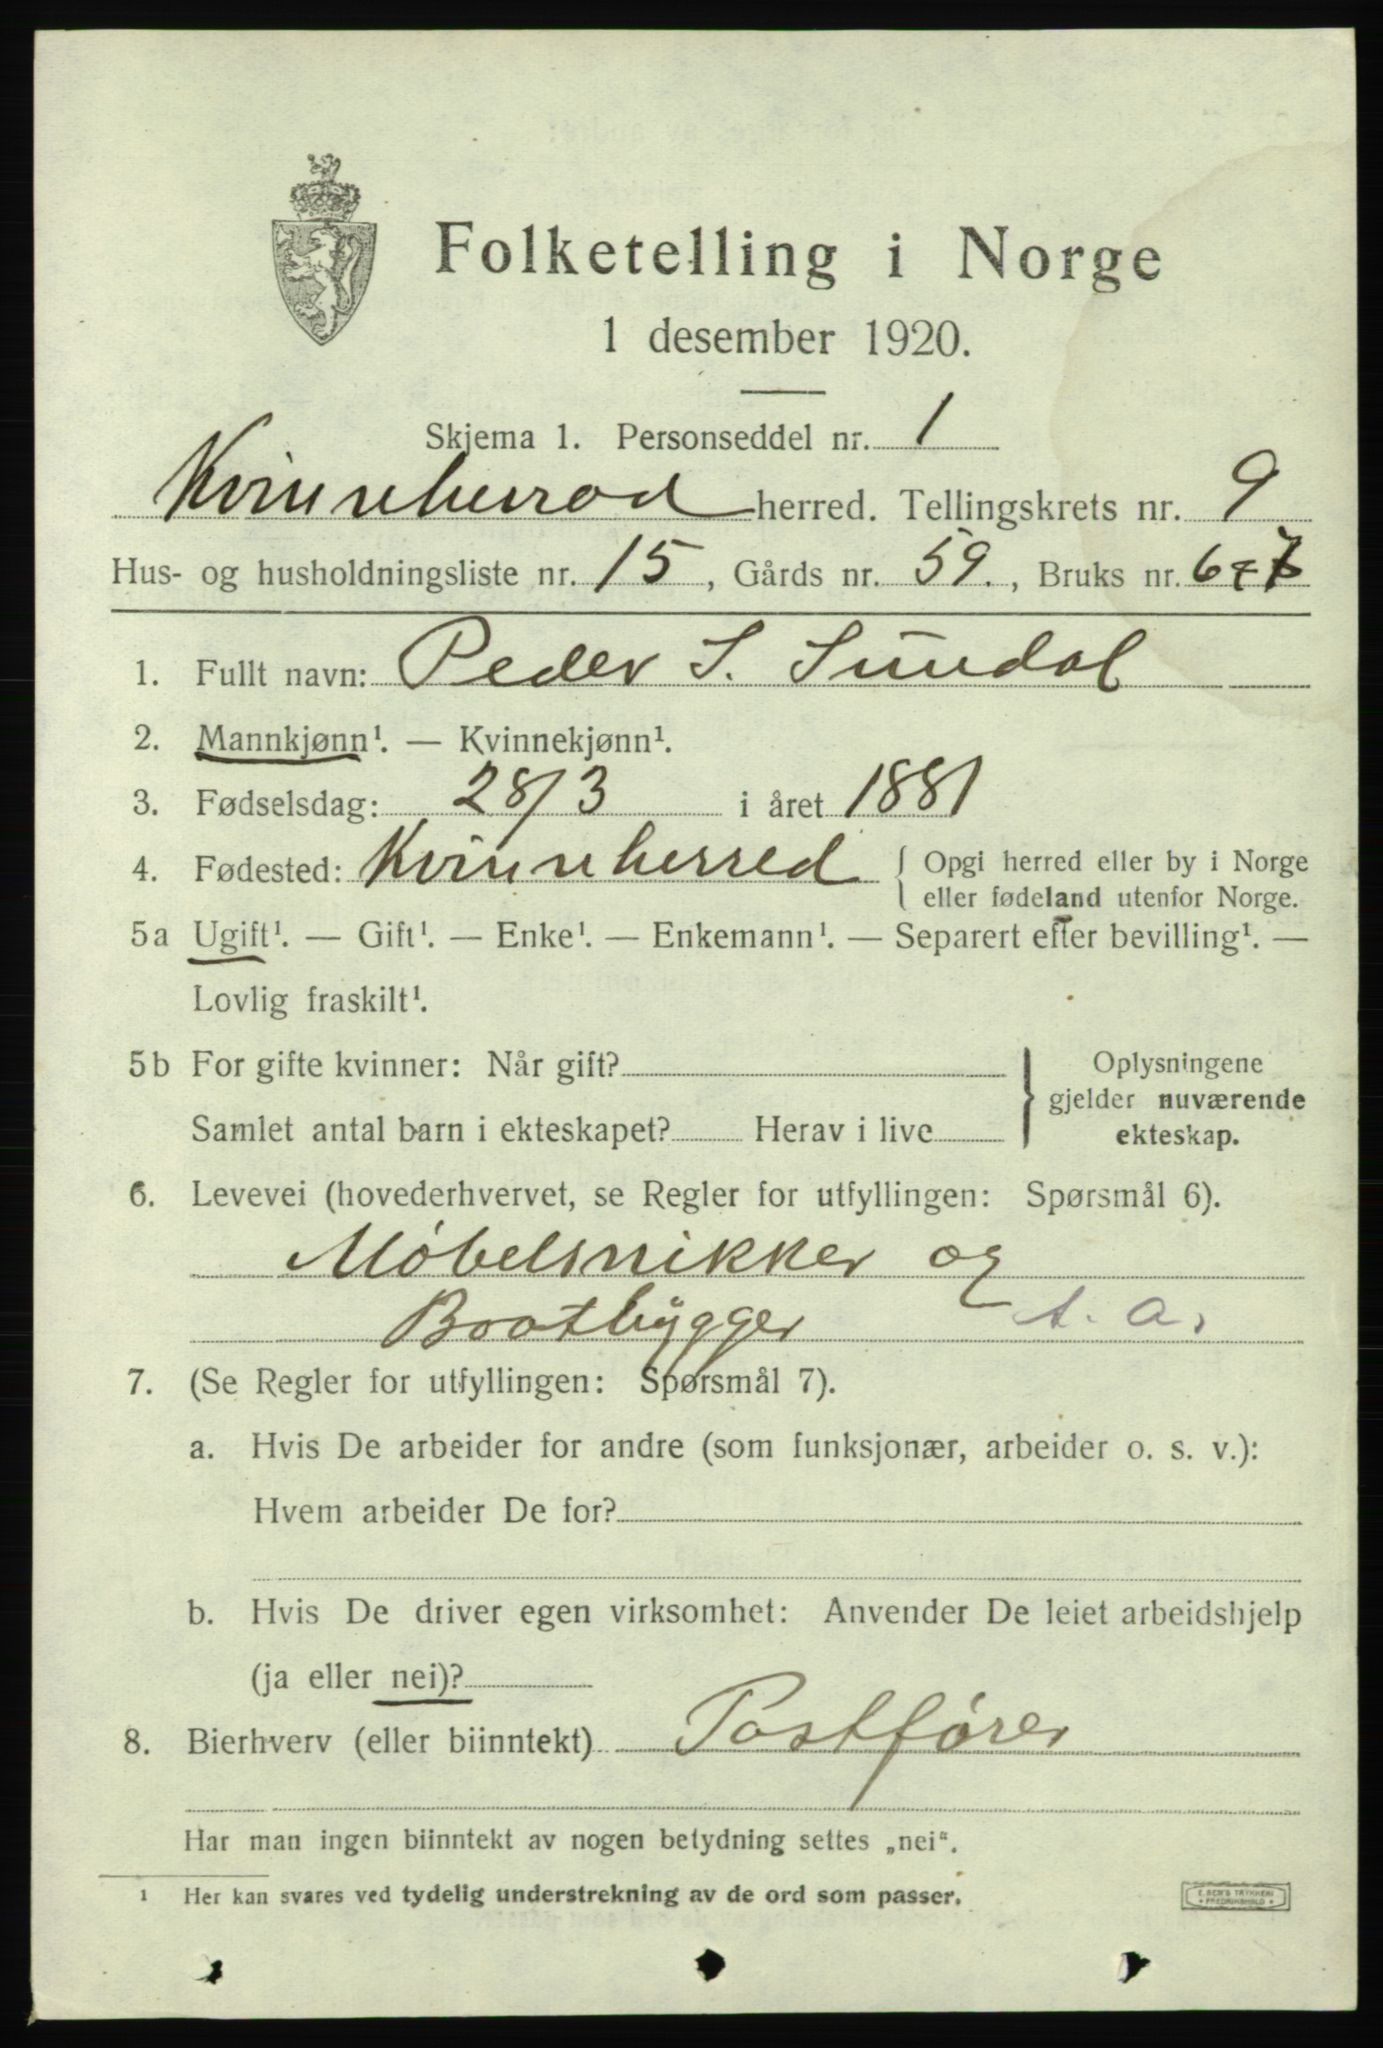 Folketelling i Norge
1 desember 1920.
Skjema 1. Personseddel nr. 1
Kvinneherrad herred. Tellingskrets nr. 9
Hus- og husholdningsliste nr. 15, Gårds nr. 59., Bruks nr. 6
1. Fullt navn: Peder S. Sundal
2. Mannkjønn¹. — Kvinnekjønn¹.
3. Fødselsdag: 28/3 i året 1881
4. Fødested: Kvinneherred { Opgi herred eller by i Norge
eller fødeland utenfor Norge.
5a Ugift¹. — Gift¹. — Enke¹. — Enkemann¹. — Separert efter bevilling¹. —
Lovlig fraskilt¹.
5b For gifte kvinner: Når gift? } Oplysningene
gjelder nuværende
Samlet antal barn i ekteskapet? Herav i live ekteskap.
6. Levevei (hovederhvervet, se Regler for utfyllingen: Spørsmål 6).
Møbelsnikker og
Baatbygger s. a.
7. (Se Regler for utfyllingen: Spørsmål 7).
a. Hvis De arbeider for andre (som funksjonær, arbeider o. s. v.):
Hvem arbeider De for?
b. Hvis De driver egen virksomhet: Anvender De leiet arbeidshjelp
(ja eller nei)?
8. Bierhverv (eller biinntekt) Postfører
Har man ingen biinntekt av nogen betydning settes „nei“.
¹ Her kan svares ved tydelig understrekning av de ord som passer.
E. SEM'S TRYKKERI
FREDRIKSHALD